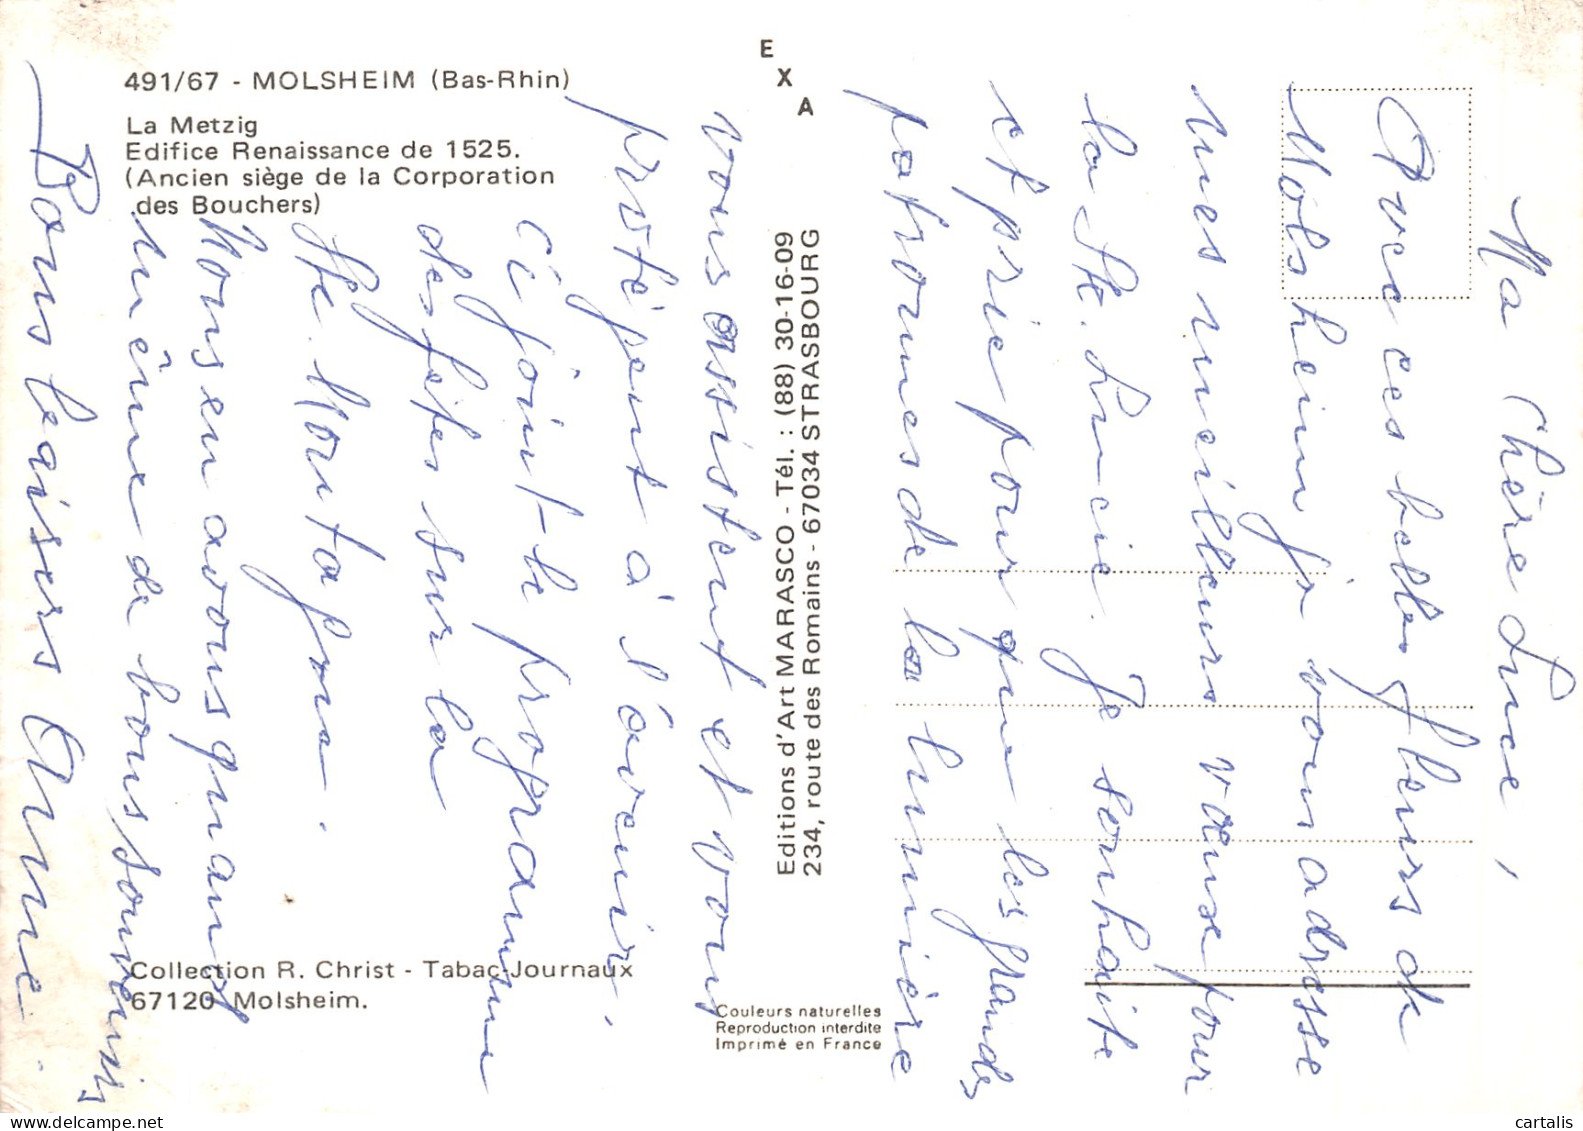 491/67 - MOLSHEIM (Bas-Rhin)
La Metzig
Edifice Renaissance de 1525.
(Ancien siège de la Corporation
des Bouchers)
E
X
A
Editions d'Art MARASCO - Tél. : (88) 30-16-09
234, route des Romains - 67034 STRASBOURG
Collection R. Christ - Tabac-Journaux
67120 Molsheim.
Couleurs naturelles
Reproduction interdite
Imprimé en France
Ma Chère Luce,
Avec ces belles fleurs de
Molsheim je vous adresse
mes meilleurs vœux pour
la Ste. Lucie. Je souhaite
et prie pour que les grandes
patronnes de la lumière
vous assistent et vous
protègent à l'avenir.
Ci joint le programme
des fêtes sur la
Ste. Montagne.
Nous en avons quand
même de bons souvenirs
Bons baisers Anne.
cartalis